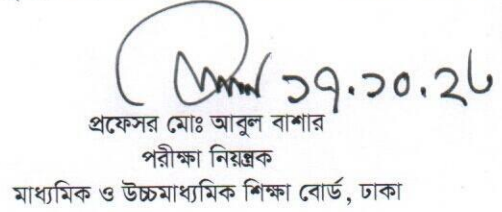 প্রফেসর মোঃ আবুল বাশার
পরীক্ষা নিয়ন্ত্রক
মাধ্যমিক ও উচ্চমাধ্যমিক শিক্ষা বোর্ড, ঢাকা